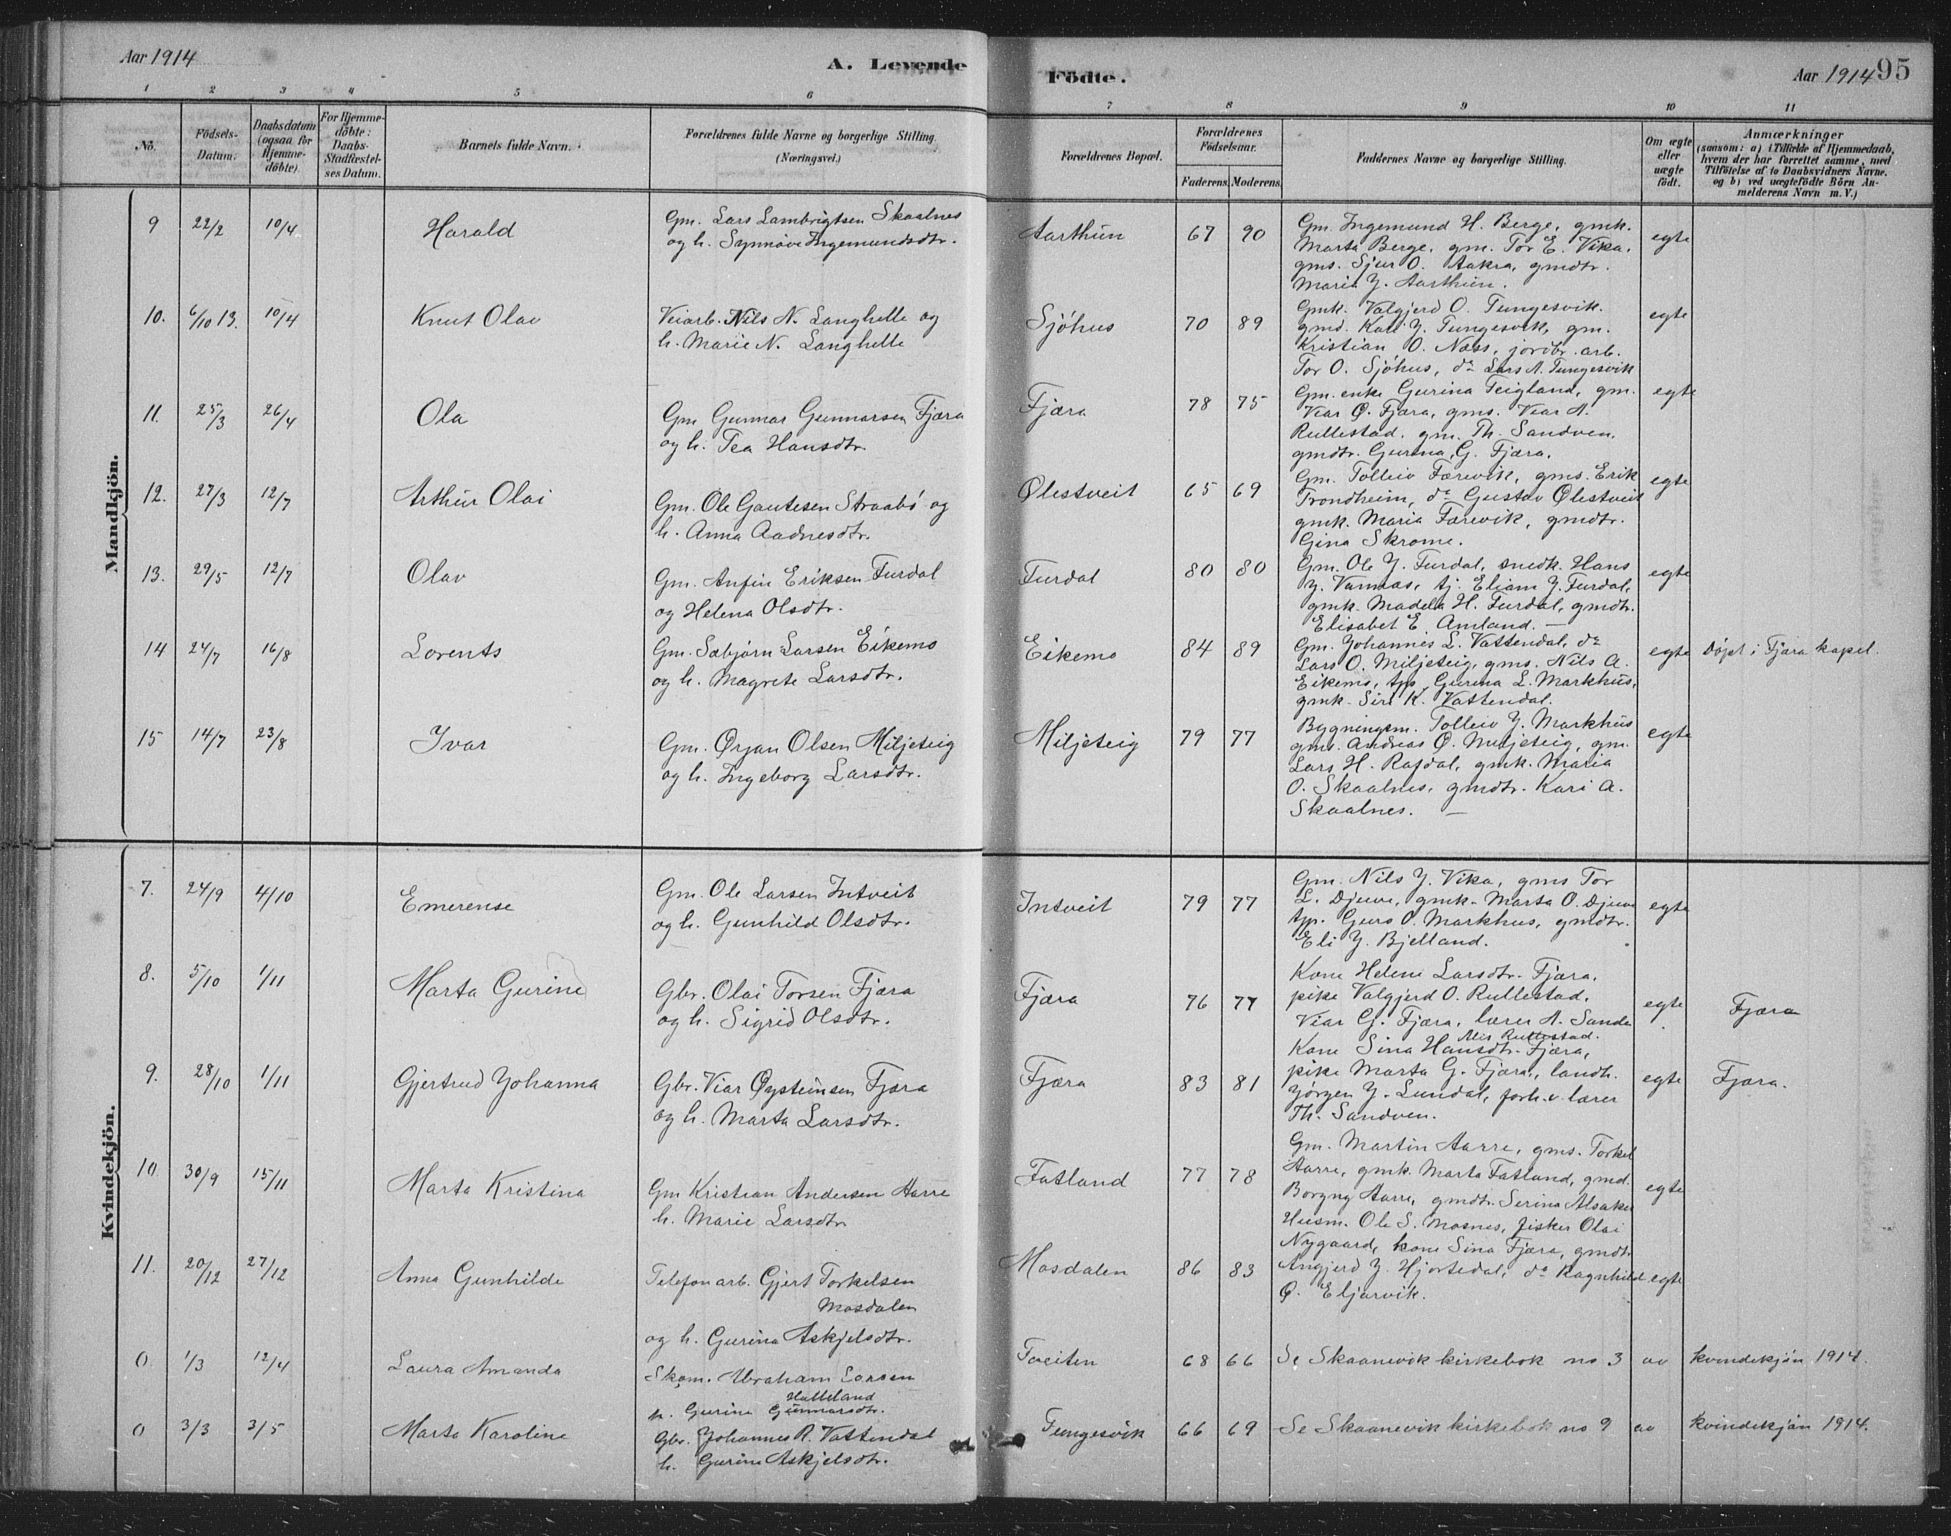 Aar 1914
A. Levende
Födte.
Aar 1914 95
1 2 3 4 5 6 7 8 9 10 11
No.
Födsels-
Datum.
Daabsdatum
(ogsaa for
Hjemme-
döbte).
For Hjemme-
döbte:
Daabs-
Stadfæstel-
ses Datum.
Barnets fulde Navn.
Forældrenes fulde Navne og borgerlige Stilling.
(Næringsvei.)
Forældrenes Bopæl.
Forældrenes
Födselsaar.
Faderens. Moderens.
Faddernes Navne og borgerlige Stilling.
Om ægte
eller
uægte
födt.
Anmærkninger
(saasom: a) i Tilfælde af Hjemmedaab,
hvem der har forrettet samme, med
Tilföielse af to Daabsvidners Navne.
og b) ved uægtefödte Börn An-
melderens Navn m. V.)
Mandkjön.
9 22/2 10/4 Harald
Gm. Lars Lambrigtsen Skaalnes
og h. Synnöve Ingemundsdtr.
Aarthun 67 90
Gm. Ingemund H. Berge, gmk.
Marta Berge, gm. Tor E. Vika,
gms. Sjur O. Aakra, gmdtr.
Maria J. Aarthun.
egte
10. 6/10 13. 10/4 Knut Olav
Veiarb. Nils N. Langhelle og
h. Marie N. Langhelle
Sjöhus 70 89
Gmk. Valgjerd O. Tungesvik.
gmd. Kari J. Tungesvik, gm.
Kristian O. Næss, jordbr. arb.
Tor O. Sjöhus, do Lars A. Tungesvik
egte
11. 25/3 26/4 Ola
Gm Gunnar Gunnarsen Fjæra
og h. Tea Hansdtr.
Fjæra 78 75
Gm. enke Gurina Teigland, gm.
Viar Ø. Fjæra, gms. Viar A.
Rullestad. gm. Th. Sandven,
gmdtr. Gurina G. Fjæra.
egte
12. 27/3 12/7 Arthur Olai
Gm. Ole Gautesen Straabö og
h. Anna Aadnesdtr.
Ølestveit 65 69
Gm. Tolleiv Færevik, gms. Erik
Trondheim, do Gustav Ølestveit
gmk. Maria Færevik, gmdtr.
Gina Skrome.
egte
13. 29/5 12/7 Olav
Gm. Anfin Eriksen Furdal
og Helena Olsdtr.
Furdal 80 80
Gm. Ole J. Furdal, snedk. Hans
J. Vannes, tj. Eliam J. Furdal,
gmk. Madela H. Furdal, gmdtr.
Elisabet E. Amland. —
egte
14 24/7 16/8 Lorents
Gm. Sæbjörn Larsen Eikemo
og h. Magrete Larsdtr.
Eikemo 84 89
Gm. Johannes L. Vattendal, do
Lars O. Miljeteig, gms. Nils A.
Eikemo, tjp. Gurina L. Markhus,
gmk. Siri K. Vattendal.
egte
Döpt i Fjæra kapel.
15 14/7 23/8 Ivar
Gm. Ørjan Olsen Miljeteig
og h. Ingeborg Larsdtr.
Miljeteig 79 77
Bygningsm. Tolleiv J. Markhus
gms. Andreas Ø. Miljeteig, gm.
Lars H. Rafdal, gmk. Maria
O. Skaalnes, gmdtr. Kari A.
Skaalnes. —
egte
Kvindekjön.
7. 24/9 4/10 Emerense
Gm. Ole Larsen Intveit
og h. Gunhild Olsdtr.
Intveit 79 77
Gm. Nils J. Vika, gms Tor
L. Djuve, gmk. Marta O. Djuve
tjp. Guro O. Markhus, gmdtr.
Eli J. Bjelland.
egte
8. 5/10 1/11 Marta Gurine
Gbr. Olai Torsen Fjæra
og h. Sigrid Olsdtr.
Fjæra 76 77
Kone Helene Larsdtr. Fjæra,
pike Valgjerd O. Rullestad,
Viar G. Fjæra, lærer A. Sande
Nils Rullestad.
egte
Fjæra
9. 28/10 1/11 Gjertrud Johanna
Gbr. Viar Øysteinsen Fjæra
og h. Marta Larsdtr.
Fjæra 83 81
Kone Sina Hansdtr. Fjæra,
pike Marta G. Fjæra, landh.
Jörgen J. Lundal, forh.v. lærer
Th. Sandven.
egte
Fjæra.
10 30/9 15/11 Marta Kristina
Gm Kristian Andersen Aarre
h. Marie Larsdtr
Fatland 77 78
Gm. Martin Aarre, gms. Torkel
Aarre, gmk. Marta Fatland, gmd.
Borgny Aarre, gmdtr. Serina Alsaker
egte
11. 20/12 27/12 Anna Gunhilde
Telefonarb. Gjert Torkelsen
Mosdalen
og h. Gurina Askjelsdtr.
Mosdalen 86 83
Husm. Ole S. Mosnes, fisker Olai
Nygaard, kone Sina Fjæra, gmdtr
Angjerd J. Hjortedal, do Ragnhild
Ø. Eljarvik.
egte
0. 1/3 12/4 Laura Amanda
Skom. Abraham Larsen
Hatteland
h. Gurine Gunnarsdtr.
Tveiten 68 66
Se Skaanevik kirkebok no 3 av kvindekjön 1914.
0 3/3 3/5 Marta Karoline
Gbr. Johannes A. Vattendal
h. Gurine Askjelsdtr.
Tungesvik 66 69
Se Skaanevik kirkebok no 9 av kvindekjön 1914.